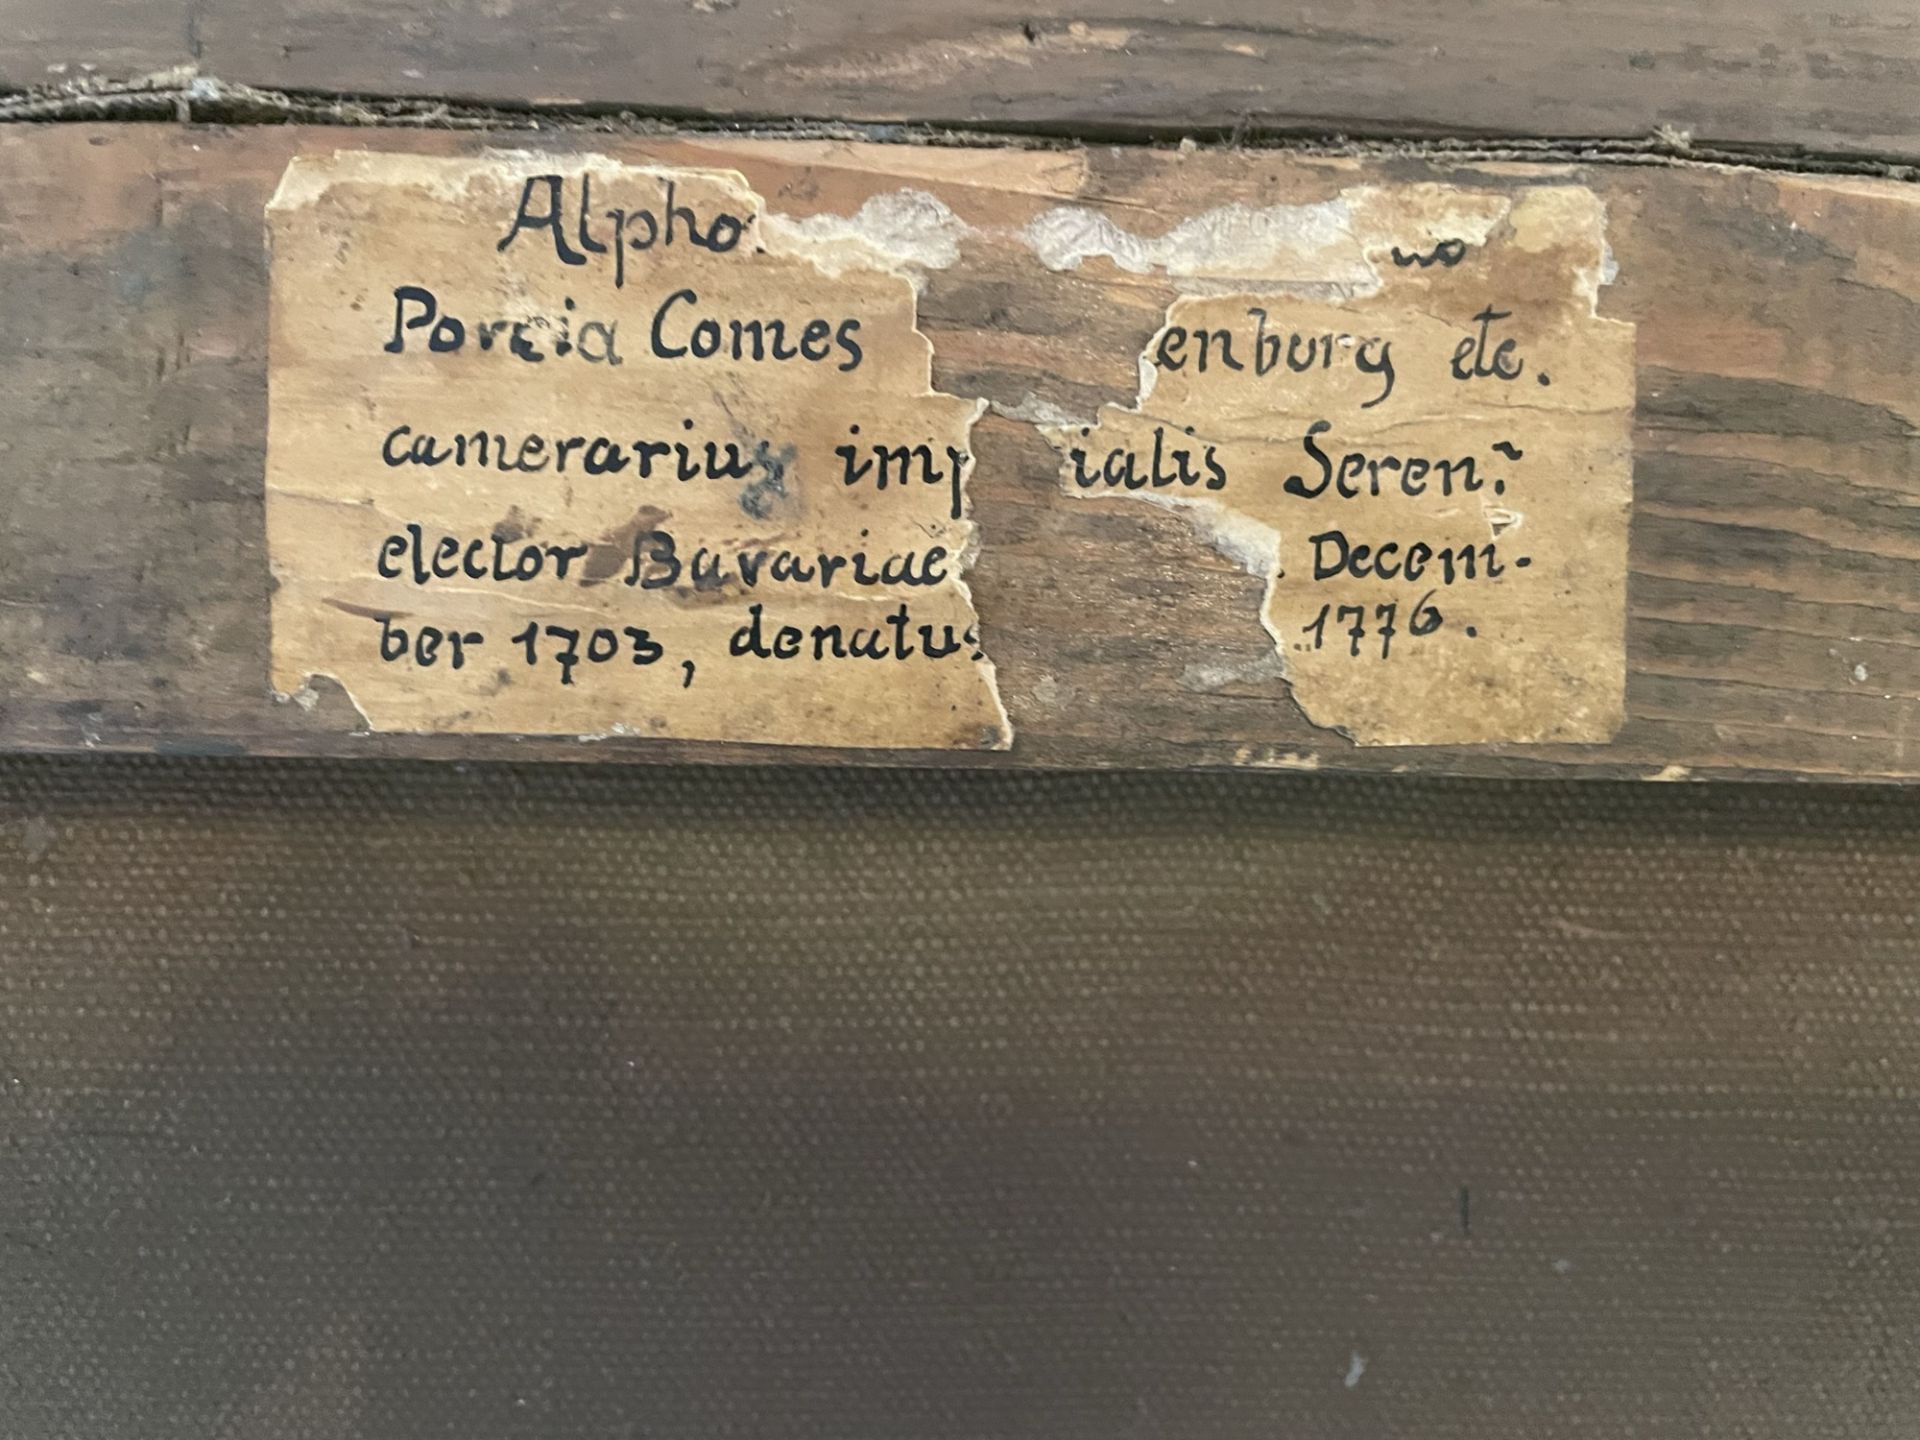 Alpho
Porcia Comes enburg etc.
camerarius imp ialis Seren:
elector Bavariae . Decem-
ber 1703, denatus 1776.